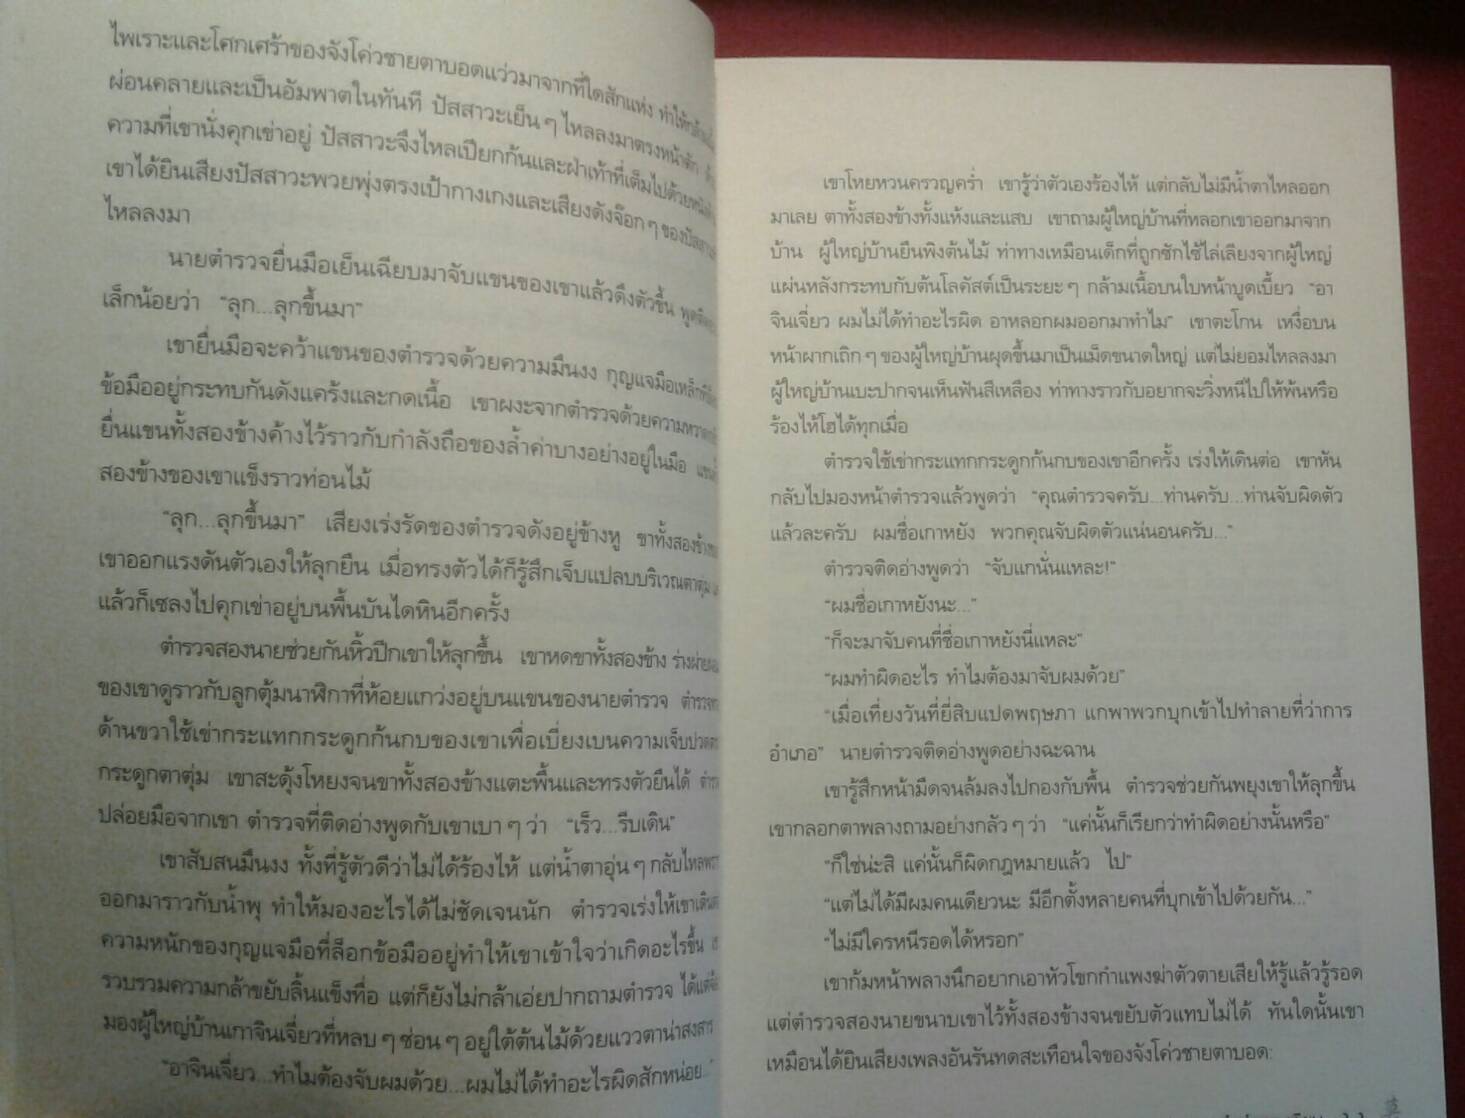 ไพเราะและโศกเศร้าของจังโค่วชายตาบอดแว่วมาจากที่ใดสักแห่ง ทำให้
ผ่อนคลายและเป็นอัมพาตในทันที ปัสสาวะเย็น ๆ ไหลลงมาตรงหน้าตัก
ความที่เขานั่งคุกเข่าอยู่ ปัสสาวะจึงไหลเปียกก้นและฝ่าเท้าที่เต็มไปด้วย
เขาได้ยินเสียงปัสสาวะพวยพุ่งตรงเป้ากางเกงและเสียงดังจ๊อก ๆ ของ
ไหลลงมา
นายตำรวจยื่นมือเย็นเฉียบมาจับแขนของเขาแล้วดึงตัวขึ้น พูด
เล็กน้อยว่า “ลุก...ลุกขึ้นมา”
เขายื่นมือจะคว้าแขนของตำรวจด้วยความมึนงง กุญแจมือเหล็กที่
ข้อมืออยู่กระทบกันดังแคร้งและกดเนื้อ เขาผงะจากตำรวจด้วยความ
ยื่นแขนทั้งสองข้างค้างไว้ราวกับกำลังถือของล้ำค่าบางอย่างอยู่ในมือ
สองข้างของเขาแข็งราวท่อนไม้
“ลุก...ลุกขึ้นมา” เสียงเร่งรัดของตำรวจดังอยู่ข้างหู ขาทั้งสองข้าง
เขาออกแรงดันตัวเองให้ลุกยืน เมื่อทรงตัวได้ก็รู้สึกเจ็บแปลบบริเวณตาตุ่ม
แล้วก็เซลงไปคุกเข่าอยู่บนพื้นบันไดหินอีกครั้ง
ตำรวจสองนายช่วยกันหิ้วปีกเขาให้ลุกขึ้น เขาหดขาทั้งสองข้าง
ของเขาดูราวกับลูกตุ้มนาฬิกาที่ห้อยแกว่งอยู่บนแขนของนายตำรวจ
ด้านขวาใช้เข่ากระแทกกระดูกก้นกบของเขาเพื่อเบี่ยงเบนความเจ็บปวด
กระดูกตาตุ่ม เขาสะดุ้งโหยงจนขาทั้งสองข้างแตะพื้นและทรงตัวยืนได้
ปล่อยมือจากเขา ตำรวจที่ติดอ่างพูดกับเขาเบา ๆ ว่า “เร็ว...รีบเดิน”
เขาสับสนมึนงง ทั้งที่รู้ตัวดีว่าไม่ได้ร้องไห้ แต่น้ำตาอุ่น ๆ กลับไหล
ออกมาราวกับน้ำพุ ทำให้มองอะไรได้ไม่ชัดเจนนัก ตำรวจเร่งให้เขา
ความหนักของกุญแจมือที่ล็อกข้อมืออยู่ทำให้เขาเข้าใจว่าเกิดอะไรขึ้น
รวบรวมความกล้าขยับลิ้นแข็งทื่อ แต่ก็ยังไม่กล้าเอ่ยปากถามตำรวจ
มองผู้ใหญ่บ้านเกาจินเจี่ยวที่หลบ ๆ ซ่อน ๆ อยู่ใต้ต้นไม้ด้วยแววตาน่าสงสาร
“อาจินเจี่ยว...ทำไมต้องจับผมด้วย...ผมไม่ได้ทำอะไรผิดสักหน่อย...”
เขาโหยหวนครวญคร่ำ เขารู้ว่าตัวเองร้องไห้ แต่กลับไม่มีน้ำตาไหลออก
มาเลย ตาทั้งสองข้างทั้งแห้งและแสบ เขาถามผู้ใหญ่บ้านที่หลอกเขาออกมาจาก
บ้าน ผู้ใหญ่บ้านยืนพิงต้นไม้ ท่าทางเหมือนเด็กที่ถูกซักไซ้ไล่เลียงจากผู้ใหญ่
แผ่นหลังกระทบกับต้นโลคัสต์เป็นระยะ ๆ กล้ามเนื้อบนใบหน้าบูดเบี้ยว “อา
จินเจี่ยว ผมไม่ได้ทำอะไรผิด อาหลอกผมออกมาทำไม” เขาตะโกน เหงื่อบน
หน้าผากเถิก ๆ ของผู้ใหญ่บ้านผุดขึ้นมาเป็นเม็ดขนาดใหญ่ แต่ไม่ยอมไหลลงมา
ผู้ใหญ่บ้านเบะปากจนเห็นฟันสีเหลือง ท่าทางราวกับอยากจะวิ่งหนีไปให้พ้นหรือ
ร้องไห้โฮได้ทุกเมื่อ
ตำรวจใช้เข่ากระแทกกระดูกก้นกบของเขาอีกครั้ง เร่งให้เดินต่อ เขาหัน
กลับไปมองหน้าตำรวจแล้วพูดว่า “คุณตำรวจครับ...ท่านครับ...ท่านจับผิดตัว
แล้วละครับ ผมชื่อเกาหยัง พวกคุณจับผิดตัวแน่นอนครับ...”
ตำรวจติดอ่างพูดว่า “จับแกนั่นแหละ!”
“ผมชื่อเกาหยังนะ...”
“ก็จะมาจับคนที่ชื่อเกาหยังนี่แหละ”
“ผมทำผิดอะไร ทำไมต้องมาจับผมด้วย”
“เมื่อเที่ยงวันที่ยี่สิบแปดพฤษภา แกพาพวกบุกเข้าไปทำลายที่ว่าการ
อำเภอ” นายตำรวจติดอ่างพูดอย่างฉะฉาน
เขารู้สึกหน้ามืดจนล้มลงไปกองกับพื้น ตำรวจช่วยกันพยุงเขาให้ลุกขึ้น
เขากลอกตาพลางถามอย่างกลัว ๆ ว่า “แค่นั้นก็เรียกว่าทำผิดอย่างนั้นหรือ”
“ก็ใช่น่ะสิ แค่นั้นก็ผิดกฎหมายแล้ว ไป”
“แต่ไม่ได้มีผมคนเดียวนะ มีอีกตั้งหลายคนที่บุกเข้าไปด้วยกัน...”
“ไม่มีใครหนีรอดได้หรอก”
เขาก้มหน้าพลางนึกอยากเอาหัวโขกกำแพงฆ่าตัวตายเสียให้รู้แล้วรู้รอด
แต่ตำรวจสองนายขนาบเขาไว้ทั้งสองข้างจนขยับตัวแทบไม่ได้ ทันใดนั้นเขา
เหมือนได้ยินเสียงเพลงอันรันทดสะเทือนใจของจังโค่วชายตาบอด: